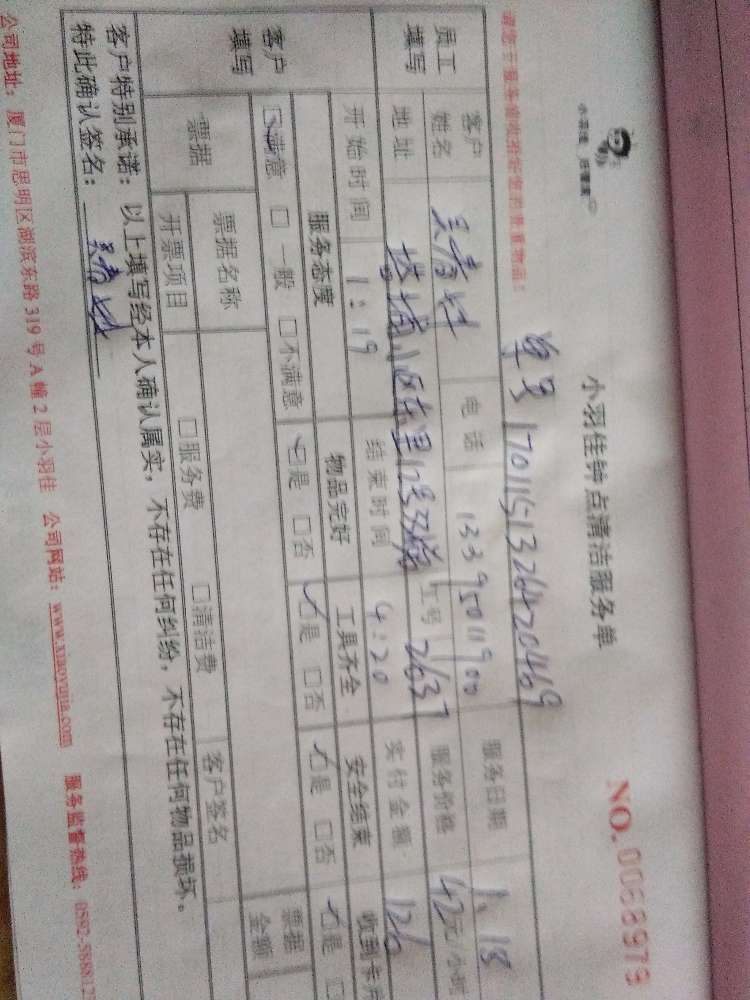 小羽佳钟点清洁服务单
NO.0068979
单号 1701151326420469
请您于服务前收拾好您的贵重物品！
员工填写
客户姓名 电话 13395011900 服务日期 1.18
地址 小区东里 工号 2637 服务价格 42元/小时
开始时间 1:19 结束时间 4:20 实付金额 126
客户填写
服务态度 物品完好 工具齐全 安全结束 收到卡片
☑满意 □一般 □不满意 ☑是 □否 ☑是 □否 ☑是 □否 ☑是 □
票据 票据名称 客户签名 票据金额
开票项目 □服务费 □清洁费
客户特别承诺：以上填写经本人确认属实，不存在任何纠纷，不存在任何物品损坏。
特此确认签名：
公司地址：厦门市思明区湖滨东路319号A幢2层小羽佳 公司网站：www.xiaoyujia.com 服务监督热线：0592-588812